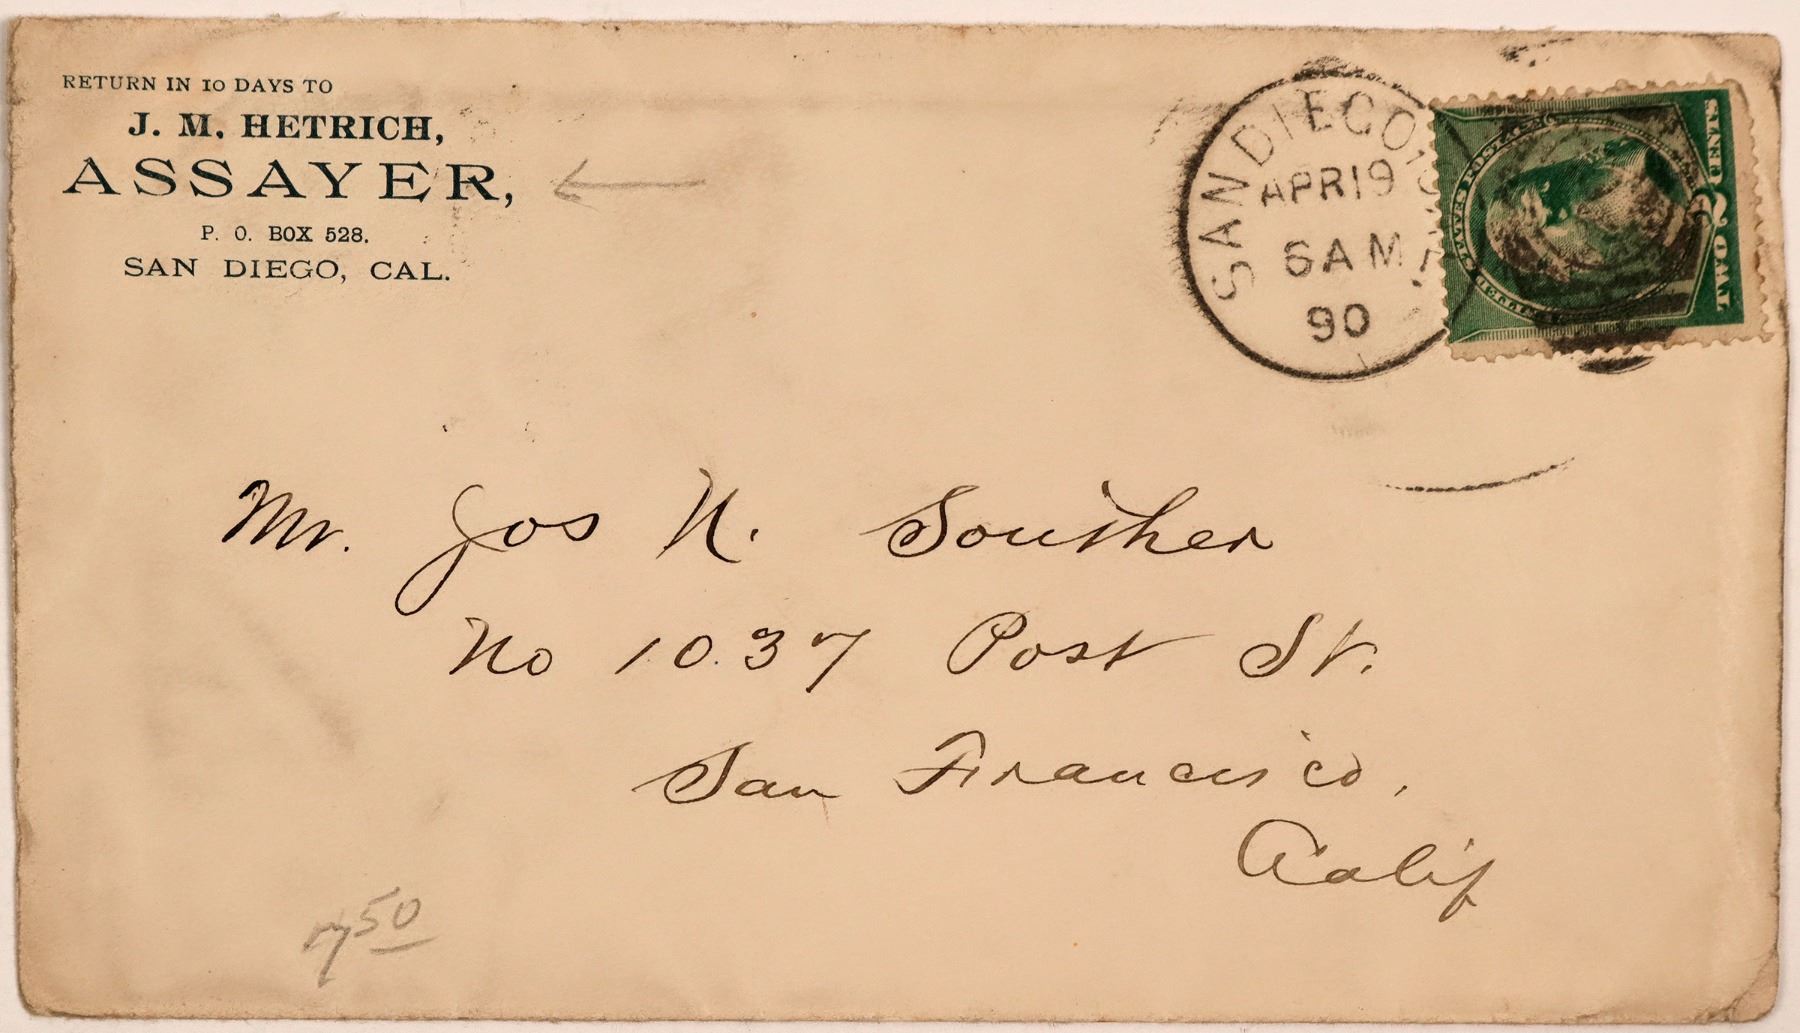 RETURN IN 10 DAYS TO
J. M. HETRICH,
ASSAYER,
P. O. BOX 528.
SAN DIEGO, CAL.
SAN DIEGO
APR 19
6 AM
90
UNITED STATES POSTAGE
TWO 2 CENTS
Mr. Jos N. Souther
No 1037 Post St.
San Francisco,
Calif
750